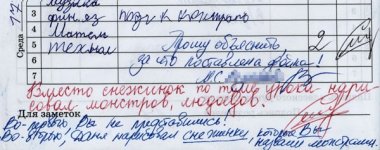 17
Среда
музыка
физ-ра
подг к контроль
4 Матем
5 технол
Прошу объяснить
2
6
за что поставлена двойка!
7
М.С.
Вместо снежинок по теме урока нари-
совал монстров, людоедов.
Для заметок
Во-первых, Вы не представились!
Во-вторых, Даня нарисовал снежинки, которые Вы
назвали монстрами.